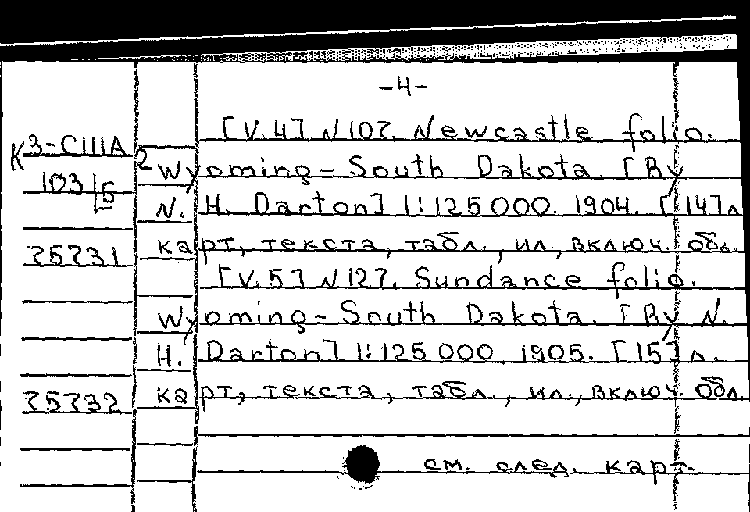 -4-
[V.4] N107. Newcastle folio.
К3-СШАⅠ2 Wyoming - South Dakota. [By
103/5 N. H. Darton] 1:125000. 1904. [14] л
карт, текста, табл., ил., включ. обл.
25231
[V.5] N127. Sundance folio.
Wyoming - South Dakota. [By N.
H. Darton] 1:125000. 1905. [15] л.
25232 карт, текста, табл., ил., включ. обл.
см. след. карт.